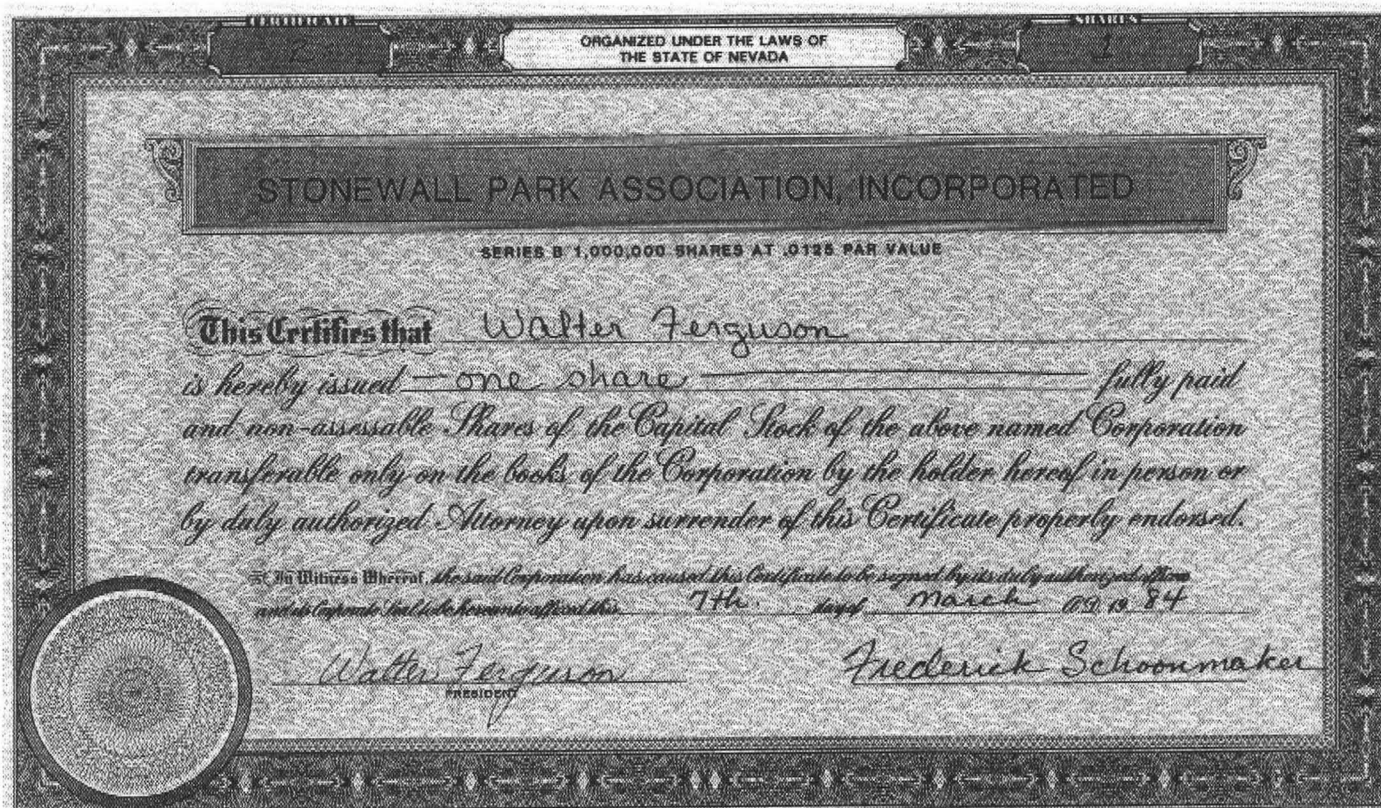 CERTIFICATE
2
ORGANIZED UNDER THE LAWS OF
THE STATE OF NEVADA
SHARES
1
STONEWALL PARK ASSOCIATION, INCORPORATED
SERIES B 1,000,000 SHARES AT .0125 PAR VALUE
This Certifies that Walter Ferguson
is hereby issued — one share — fully paid
and non-assessable Shares of the Capital Stock of the above named Corporation
transferable only on the books of the Corporation by the holder hereof in person or
by duly authorized Attorney upon surrender of this Certificate properly endorsed.
In Witness Whereof, the said Corporation has caused this Certificate to be signed by its duly authorized officers
and its Corporate Seal to be hereunto affixed this 7th. day of March A.D. 19 84
Walter Ferguson Frederick Schoonmaker
PRESIDENT